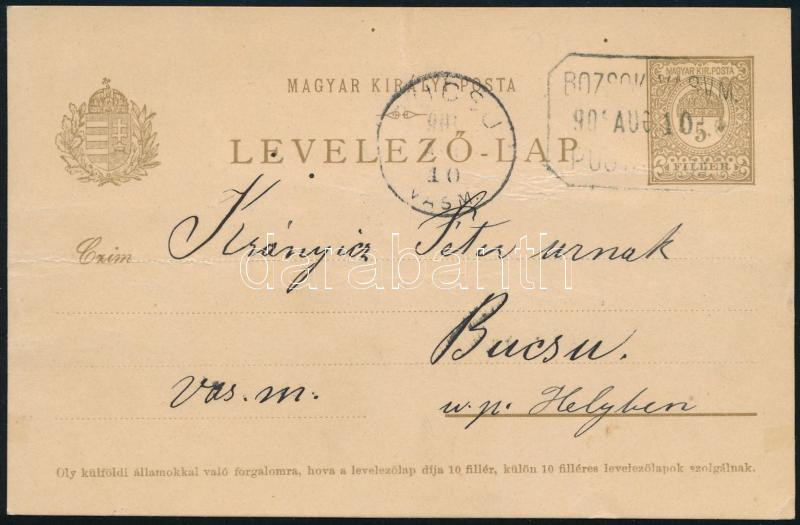 MAGYAR KIRÁLYI POSTA
LEVELEZŐ-LAP
BUCSU
10
VASM.
BOZSOK VASVM.
AUG 10
MAGYAR KIR. POSTA
5
FILLÉR
Czim
Krányicz Péter urnak
Bucsu.
Vas. m.
u. p. Helyben
Oly külföldi államokkal való forgalomra, hova a levelezőlap díja 10 fillér, külön 10 filléres levelezőlapok szolgálnak.
darabanth